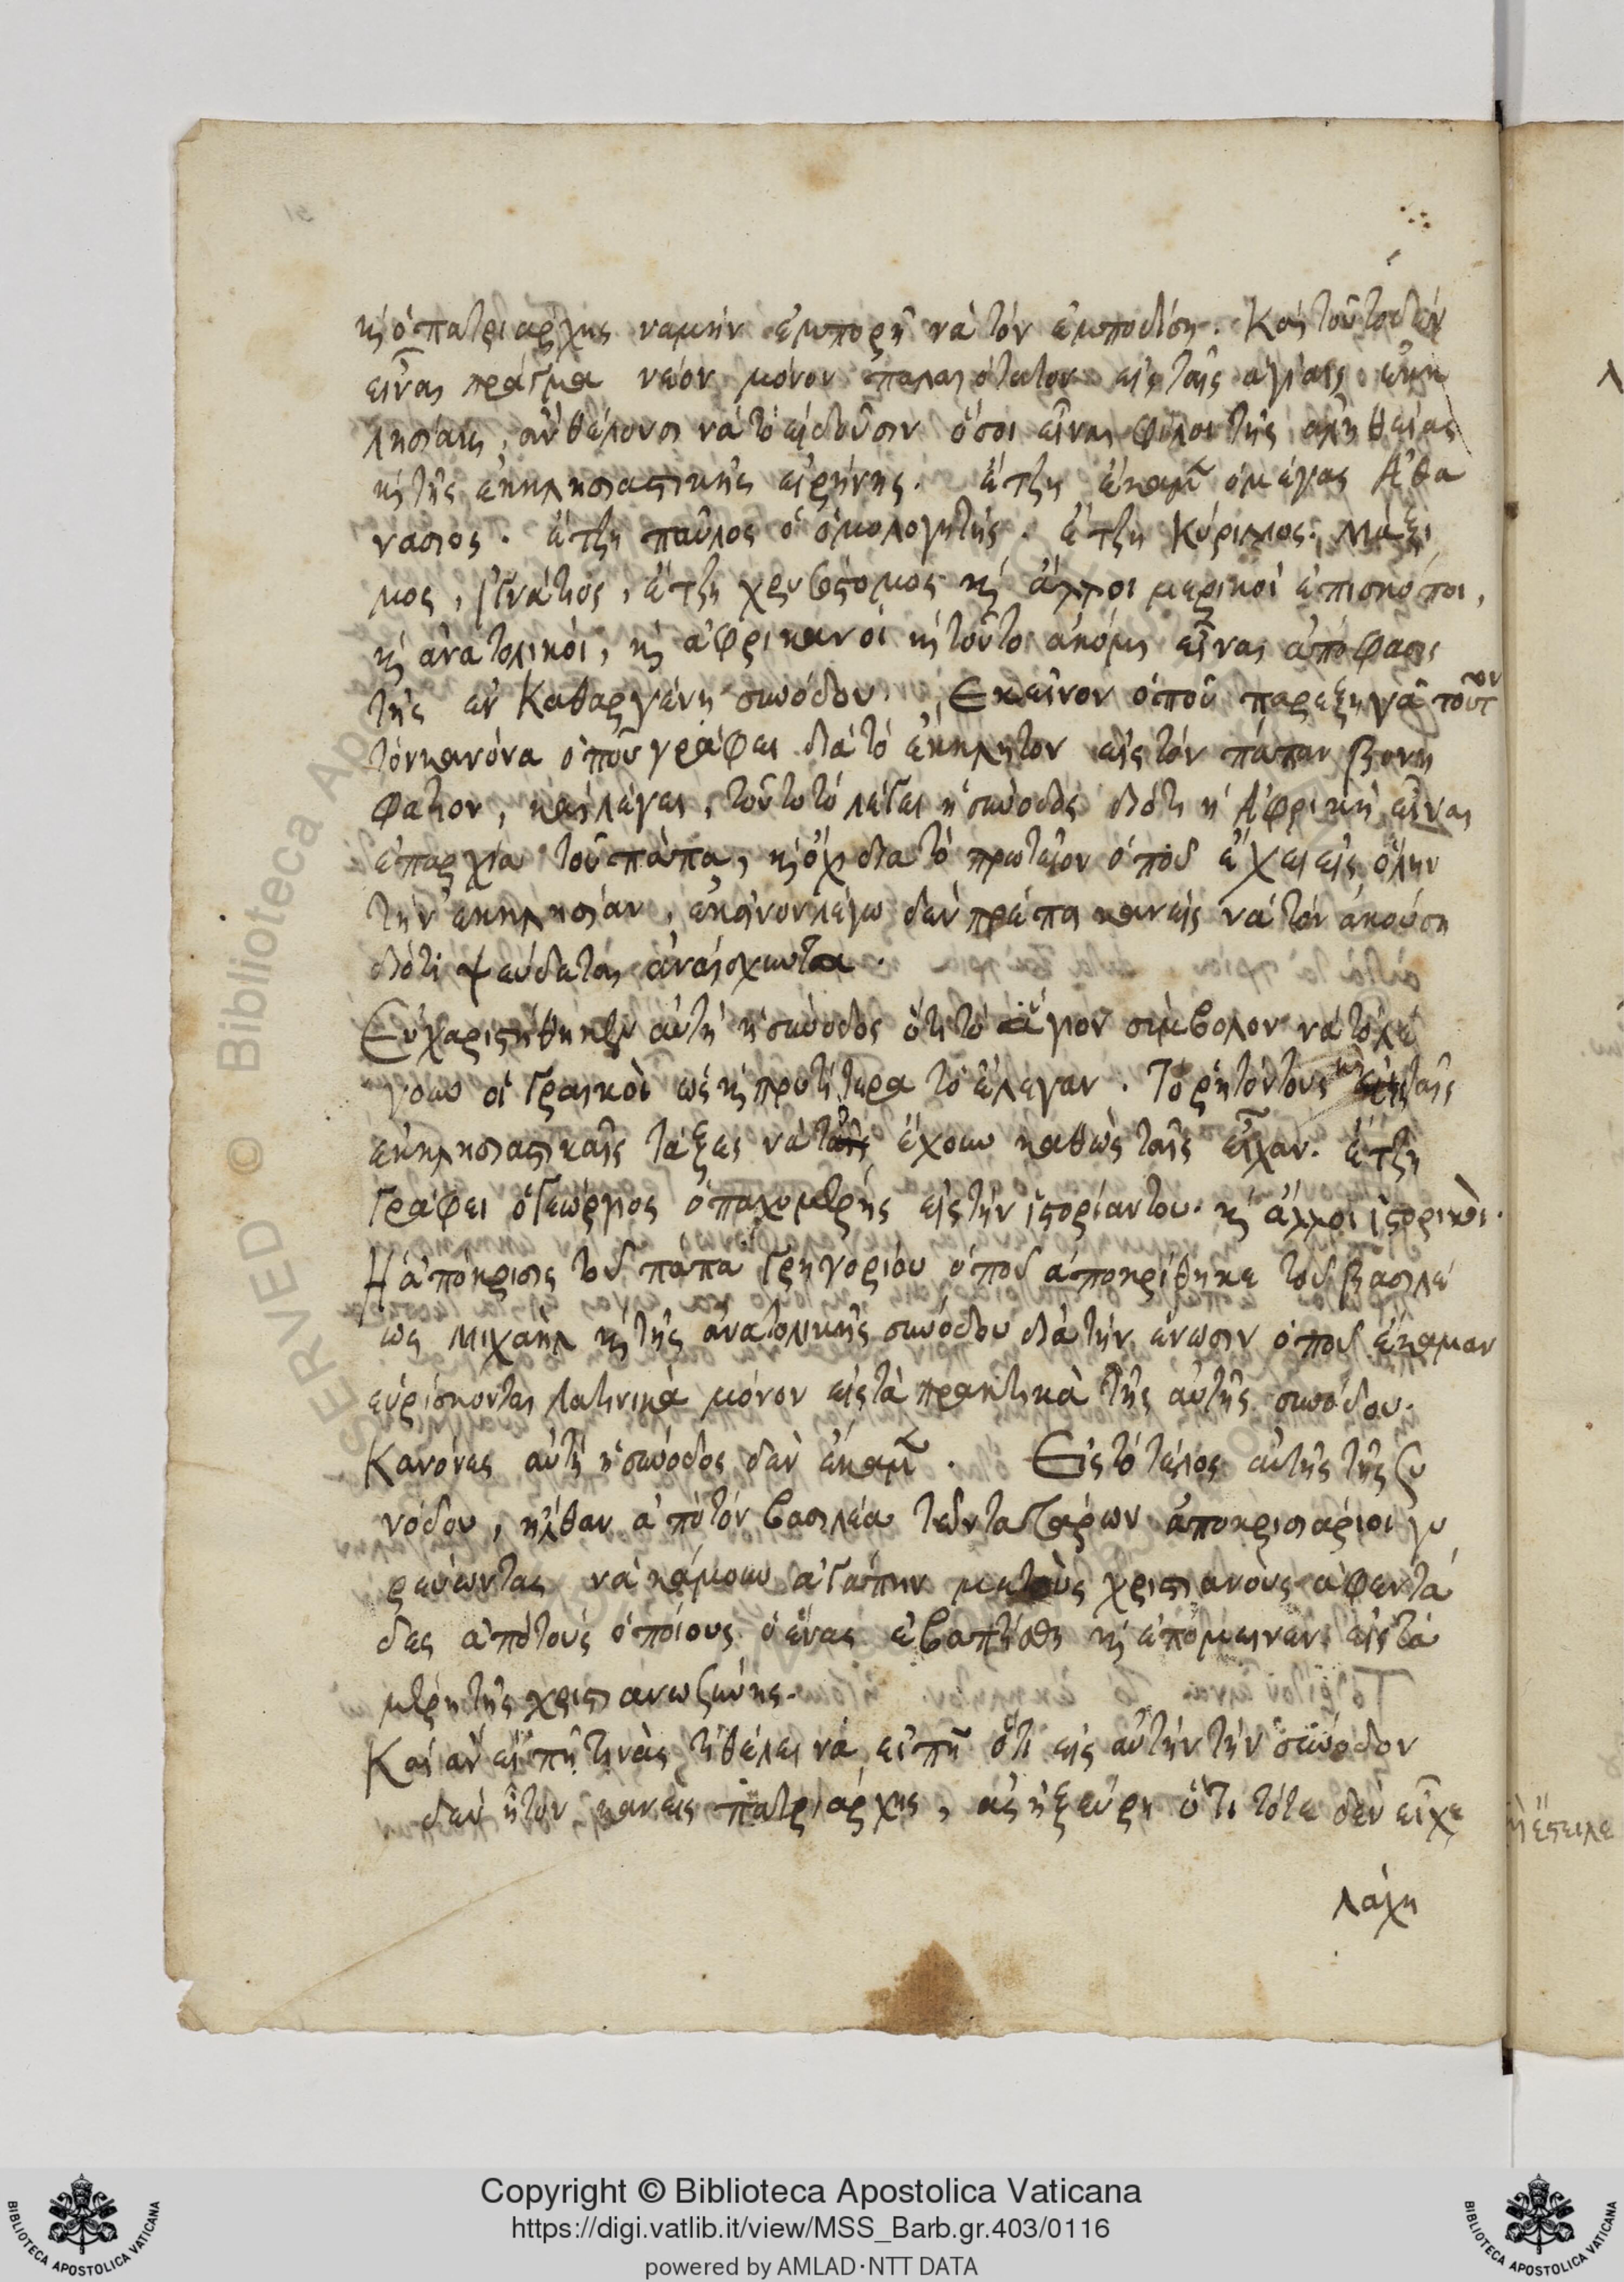 κ̀ ὁ πατριάρχης ναμὴν ἐμπορῇ νὰ τὸν ἐμποδίσῃ. Καὶ τοῦτο δὲν
εἶναι πράγμα νέον μόνον παλαιότατον εἰς ταῖς ἁγίαις ἐκκ
λησίαις, ἂν θέλουσι νὰ τὸ εἰδοῦσιν ὅσοι εἶναι φίλοι τῆς ἀληθείας
κ̀ τῆς ἐκκλησιαστικῆς εἰρήνης. ἔτζη ἔκαμε ὁ μέγας Ἀθα
νάσιος. ἔτζη παῦλος ὁ ὁμολογητής. ἔτζη Κύριλλος, Μάξι
μος, Ἰγνάτιος, ἔτζη χρυσόστομος κ̀ ἄλλοι μερικοὶ ἐπισκόποι,
κ̀ ἀνατολικοί, κ̀ ἀφρικανοὶ κ̀ τοῦτο ἀκόμη εἶναι ἀπόφασις
τῆς ἐν Καθαργένῃ συνόδου. Εκεῖνον ὁποῦ παρεξηγᾷ τοῦτον
τὸν κανόνα ὁποῦ γράφει διὰ τὸ ἔκκλητον εἰς τὸν πάπαν βονη
φάτιον, καὶ λέγει, τοῦτο τὸ λέγει ἡ σύνοδος διότι ἡ Ἀφρικὴ εἶναι
ἐπαρχία τοῦ πάπα, κ̀ ὄχι διὰ τὸ πρωτεῖον ὁποῦ ἔχει εἰς ὅλην
τὴν ἐκκλησίαν, ἐκεῖνον λέγω δὲν πρέπει κανεὶς νὰ τὸν ἀκούσῃ
διότι ψεύδεται ἀναίσχυντα.
Εὐχαριστήθηκεν αὐτὴ ἡ σύνοδος ὅτι τὸ ἅγιον σύμβολον νὰ τὸ λέ
γουν οἱ Γραικοὶ ὡς κ̀ πρωτήτερα τὸ ἔλεγαν. Τὸ ρητόν τους κ̀ ταῖς
ἐκκλησιαστικαῖς τάξες νὰ ταῖς ἔχουν καθὼς ταῖς εἶχαν. ἔτζη
Γράφει ὁ Γεώργιος ὁ παχυμερής εἰς τὴν ἱστορίαν του. κ̀ ἄλλοι ἱστορικοὶ.
Η ἀπόκρισις τοῦ πάπα Γρηγορίου ὁποῦ ἀποκρίθηκε τοῦ βασιλέ
ως Μιχαὴλ κ̀ τῆς ἀνατολικῆς συνόδου διὰ τὴν ἕνωσιν ὁποῦ ἔκαμαν
εὑρίσκονται λατινικὰ μόνον εἰς τὰ πρακτικὰ τῆς αὐτῆς συνόδου.
Κανόνες αὐτὴ ἡ σύνοδος δὲν ἔκαμε. Εἰς τὸ τέλος αὐτῆς τῆς συ
νόδου, ἦλθαν ἀπὸ τὸν βασιλέα τῶν ταταρων ἀποκρισιάριοι γυ
ρεύωντας νὰ κάμουν ἀγάπην με τοὺς χριστιανοὺς ἀφεντά
δες ἀπὸ τοὺς ὁποίους ὁ ἕνας ἐβαπτίσθη κ̀ ἐπόμειναν εἰς τὰ
μέρη τῆς χριστιανωσύνης.
Καὶ ἂν εἰπῇ τινὰς τί θέλει νὰ εἰπῇ ὅτι εἰς αὐτὴν τὴν σύνοδον
δὲν ἦτον κανεὶς πατριάρχης, ἂς ἠξεύρῃ ὅτι τότε δὲν εἶχε
λάχῃ
Copyright © Biblioteca Apostolica Vaticana
https://digi.vatlib.it/view/MSS_Barb.gr.403/0116
powered by AMLAD·NTT DATA